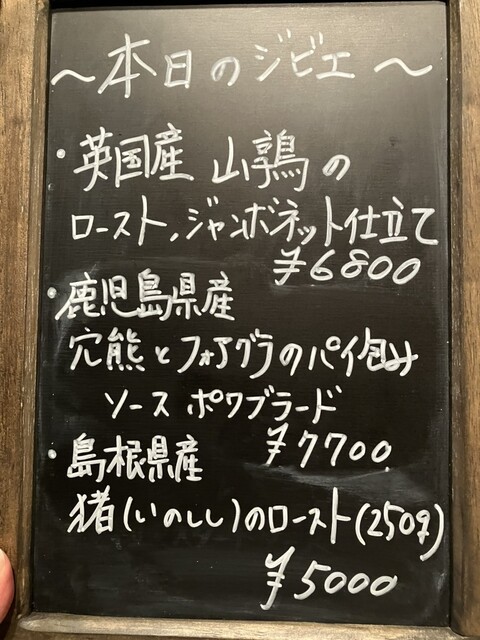 〜本日のジビエ〜
・英国産 山鶉の
ロースト、ジャンボネット仕立て
¥6800
・鹿児島県産
穴熊とフォアグラのパイ包み
ソース ポワブラード
¥7700
・島根県産
猪(いのしし)のロースト(250g)
¥5000